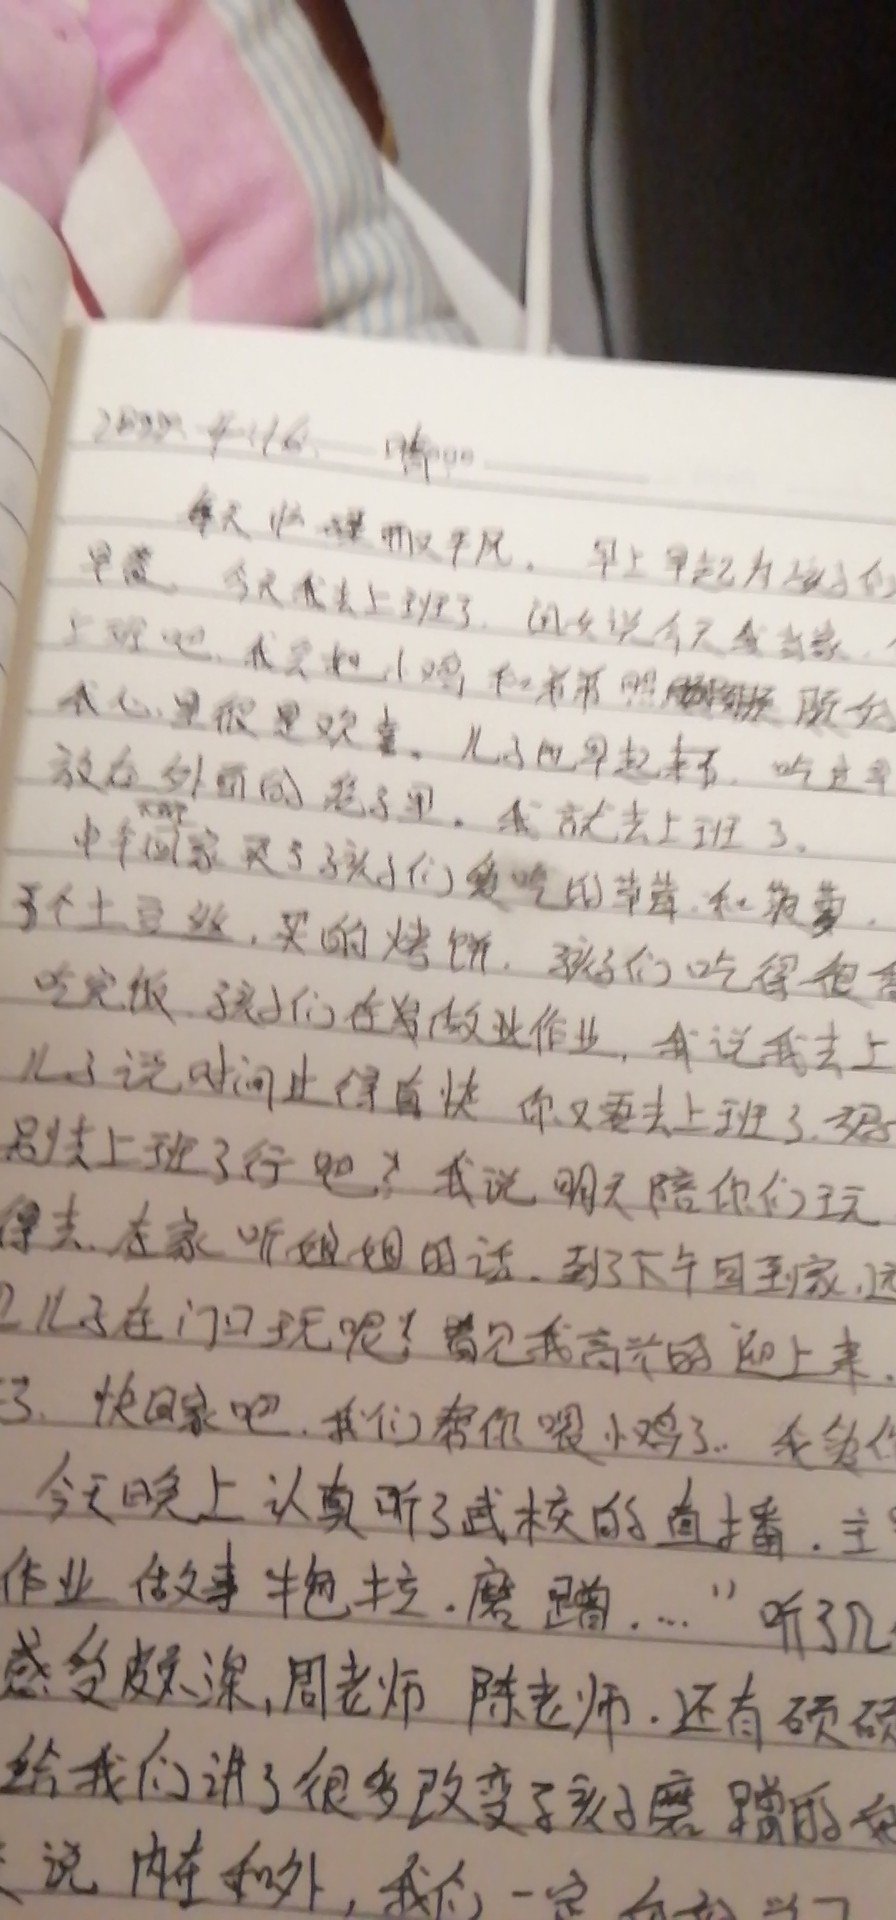 晴
每天 早上早起为孩子们
早餐。今天我去上班了。闺女说今天我当家。
上班吧。我会把小鸡和弟弟照顾好
我心里很是欢喜。儿子也早起来了。吃过早
放在外面的笼子里。我就去上班了。
中午回家买了孩子们爱吃的草莓.和菠萝.
弄个土豆丝.买的烤饼.孩子们吃得很香
吃完饭.孩子们在做作业,我说我去上
儿子说时间过得真快 你又要去上班了.
别去上班了行吧?我说明天陪你们玩
得去.在家听姐姐的话.到了下午回到家.远
儿子在门口玩呢!看见我高兴的迎上来.
了.快回家吧.我们帮你喂小鸡了..
今天晚上认真听了武校的直播.主
作业 做事拖拉.磨蹭....”听了几
感受颇深,周老师 陈老师.还有硕硕
给我们讲了很多改变了孩子磨蹭的
说内在和外,我们一定